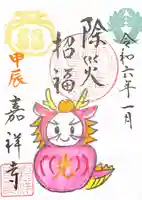 令和六年一月
除災
招福
甲辰
嘉祥寺